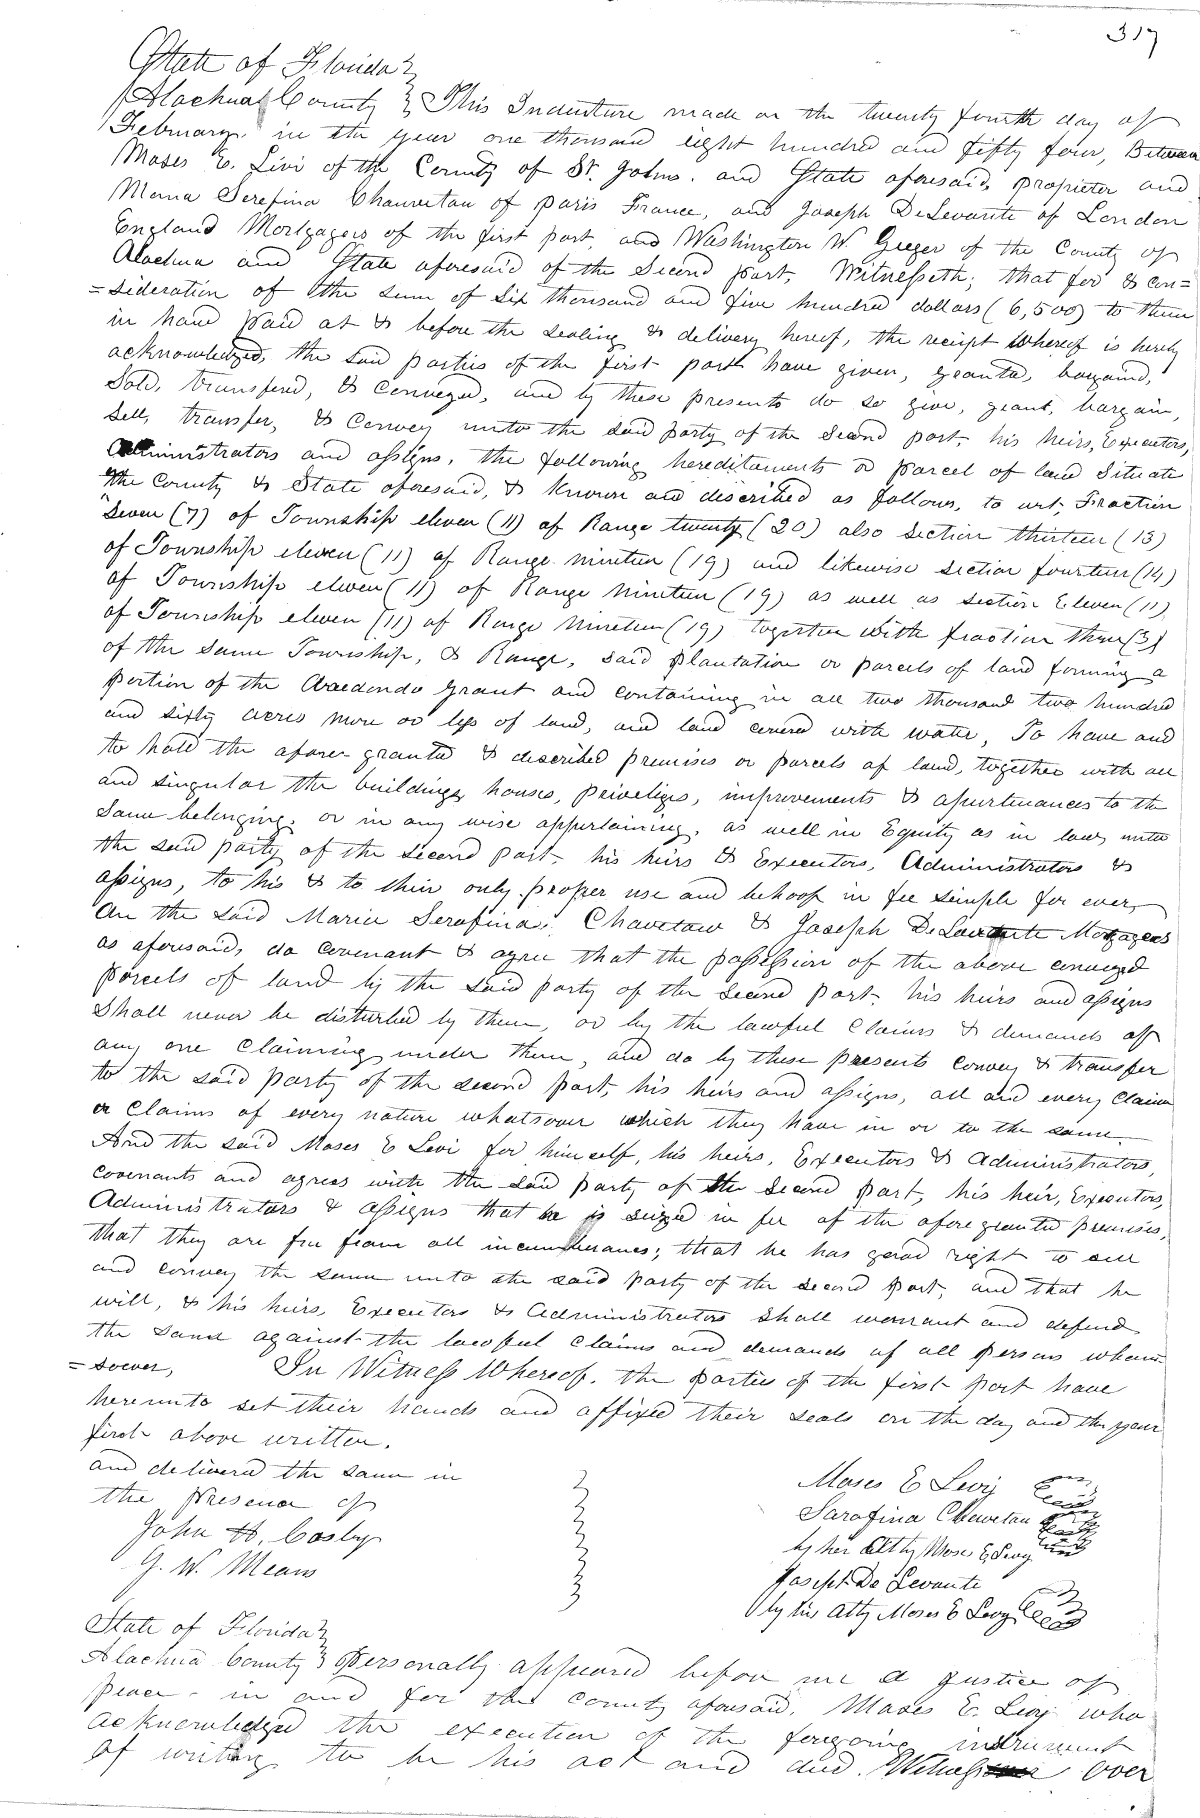 317
State of Florida }
Alachua County } This Indenture made on the twenty fourth day of
February in the year one thousand eight hundred and fifty four, Between
Moses E. Levi of the County of St. Johns. and State aforesaid, propieter and
Maria Serefina Chauvetau of paris France, and Joseph DeLevante of London
England Mortgagers of the first part, and Washington W. Geiger of the County of
Alachua and State aforesaid of the Second part, Witnesseth; that for & con=
=sideration of the sum of Six thousand and five hundred dollars (6,500) to them
in hand paid at & before the sealing & delivery hereof, the receipt whereof is hereby
acknowledged, the said parties of the first part have given, granted, bargained,
Sold, transfered, & Conveyed, and by these presents do so give, grant, bargain,
Sell, transfer, & Convey unto the said party of the Second part, his heirs, Executors,
Administrators and assigns, the following hereditaments or parcel of land Situate
the County & State aforesaid, & known and described as follows, to wit, Fraction
Seven (7) of Township eleven (11) of Range twenty (20) also section thirteen (13)
of Township eleven (11) of Range nineteen (19) and likewise section fourteen (14)
of Township eleven (11) of Range nineteen (19) as well as section Eleven (11)
of Township eleven (11) of Range nineteen (19) together with fraction three (3)
of the same Township, & Range, said plantation or parcels of land forming a
portion of the Grant and containing in all two thousand two hundred
and sixty acres more or less of land, and land covered with water, To have and
to hold the afore granted & described premises or parcels of land, together with all
and singular the buildings, houses, priveliges, improvements & apurtenances to the
Same belonging, or in any wise appertaining, as well in Equity as in law, unto
the said party of the second part, his heirs & Executors, Administrators &
assigns, to his & to their only proper use and behoof in fee simple for ever,
An the said Maria Serafina Chavetaw & Joseph DeLavante Motgagers
as aforesaid, do covenant & agree that the possession of the above conveyed
parcels of land by the said party of the second part, his heirs and assigns
Shall never be disturbed by them, or by the lawful Claims & demands of
any one Claiming under them, and do by these presents convey & transfer
to the said party of the second part, his heirs and assigns, all and every Claim
or Claims of every nature whatsover which they have in or to the same.
And the said Moses E Levi for himself, his heirs, Executors & Administrators,
covenants and agrees with the said party of the second part, his heir, Executors,
Administrators & assigns that he is seized in fee of the afore granted premises,
that they are free from all incumberances; that he has good right to sell
and convey the same unto the said party of the second part, and that he
will, & his heirs, Executors & Administrators Shall warrant and defend
the same against the lawful claims and demands of all persons whom=
=soever, In Witness Whereof, the parties of the first part have
hereunto set their hands and affixed their seals on the day and the year
first above written.
and delivered the same in
the presence of
John H. Cosby
G. W. Means
Moses E Levy
Sarafina Chevetau
by her Atty Mose E Levy
Joseph De Levante
by his Atty Moses E Levy
State of Florida }
Alachua County } Personally appeared before me a Justice of
Peace in and for the County aforesaid, Moses E. Levy who
acknowledged the execution of the foregoing instrument
of writing to be his act and deed. Over